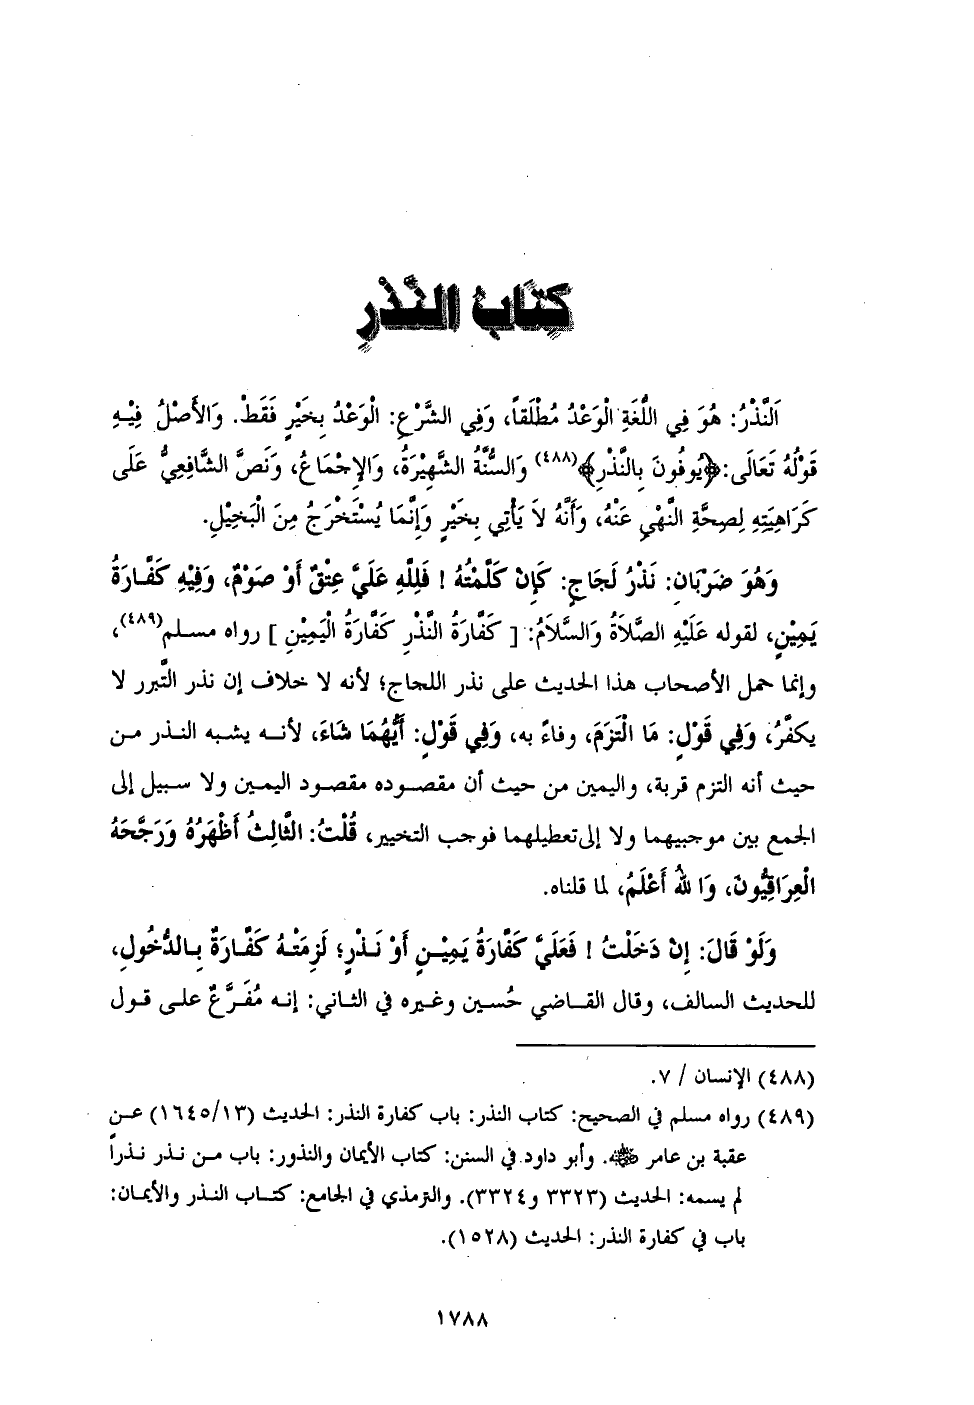 كِتَابُ النَّذْرِ
اَلنَّذْرُ: هُوَ فِي اللُّغَةِ الْوَعْدُ مُطْلَقاً، وَفِي الشَّرْعِ: الْوَعْدُ بِخَيْرٍ فَقَطْ. وَالأَصْلُ فِيْهِ
قَوْلُهُ تَعَالَى: ﴿يُوفُونَ بِالنَّذْرِ﴾(٤٨٨) وَالسُّنَّةُ الشَّهِيْرَةُ، وَالإِجْمَاعُ، وَنَصَّ الشَّافِعِيُّ عَلَى
كَرَاهِيَتِهِ لِصِحَّةِ النَّهْيِ عَنْهُ، وَأَنَّهُ لاَ يَأْتِي بِخَيْرٍ وَإِنَّمَا يُسْتَخْرَجُ مِنَ الْبَخِيْلِ.
وَهُوَ ضَرْبَانِ: نَذْرُ لَجَاجٍ: كَإِنْ كَلَّمْتُهُ ! فَلِلَّهِ عَلَيَّ عِتْقٌ أَوْ صَوْمٌ، وَفِيْهِ كَفَّارَةُ
يَمِيْنٍ، لقوله عَلَيْهِ الصَّلاَةُ وَالسَّلاَمُ: [ كَفَّارَةُ النَّذْرِ كَفَّارَةُ الْيَمِيْنِ ] رواه مسلم(٤٨٩)،
وإنما حمل الأصحاب هذا الحديث على نذر اللجاج؛ لأنه لا خلاف إن نذر التَّبرر لا
يكفَّرُ، وَفِي قَوْلٍ: مَا الْتَزَمَ، وفاءً به، وَفِي قَوْلٍ: أَيُّهُمَا شَاءَ، لأنه يشبه النذر من
حيث أنه التزم قربة، واليمين من حيث أن مقصوده مقصود اليمين ولا سبيل إلى
الجمع بين موجبيهما ولا إلى تعطيلهما فوجب التخيير، قُلْتُ: الثَّالِثُ أَظْهَرُهُ وَرَجَّحَهُ
الْعِرَاقِيُّونَ، وَا للهُ أَعْلَمُ، لما قلناه.
وَلَوْ قَالَ: إِنْ دَخَلْتُ ! فَعَلَيَّ كَفَّارَةُ يَمِيْنٍ أَوْ نَذْرٍ؛ لَزِمَتْهُ كَفَّارَةٌ بِالدُّخُولِ،
للحديث السالف، وقال القاضي حُسين وغيره في الثاني: إنه مُفَرَّعٌ على قول
(٤٨٨) الإنسان / ٧.
(٤٨٩) رواه مسلم في الصحيح: كتاب النذر: باب كفارة النذر: الحديث (١٦٤٥/١٣) عن
عقبة بن عامر ﷺ. وأبو داود في السنن: كتاب الأيمان والنذور: باب من نذر نذراً
لم يسمه: الحديث (٣٣٢٣ و٣٣٢٤). والترمذي في الجامع: كتاب النذر والأيمان:
باب في كفارة النذر: الحديث (١٥٢٨).
١٧٨٨